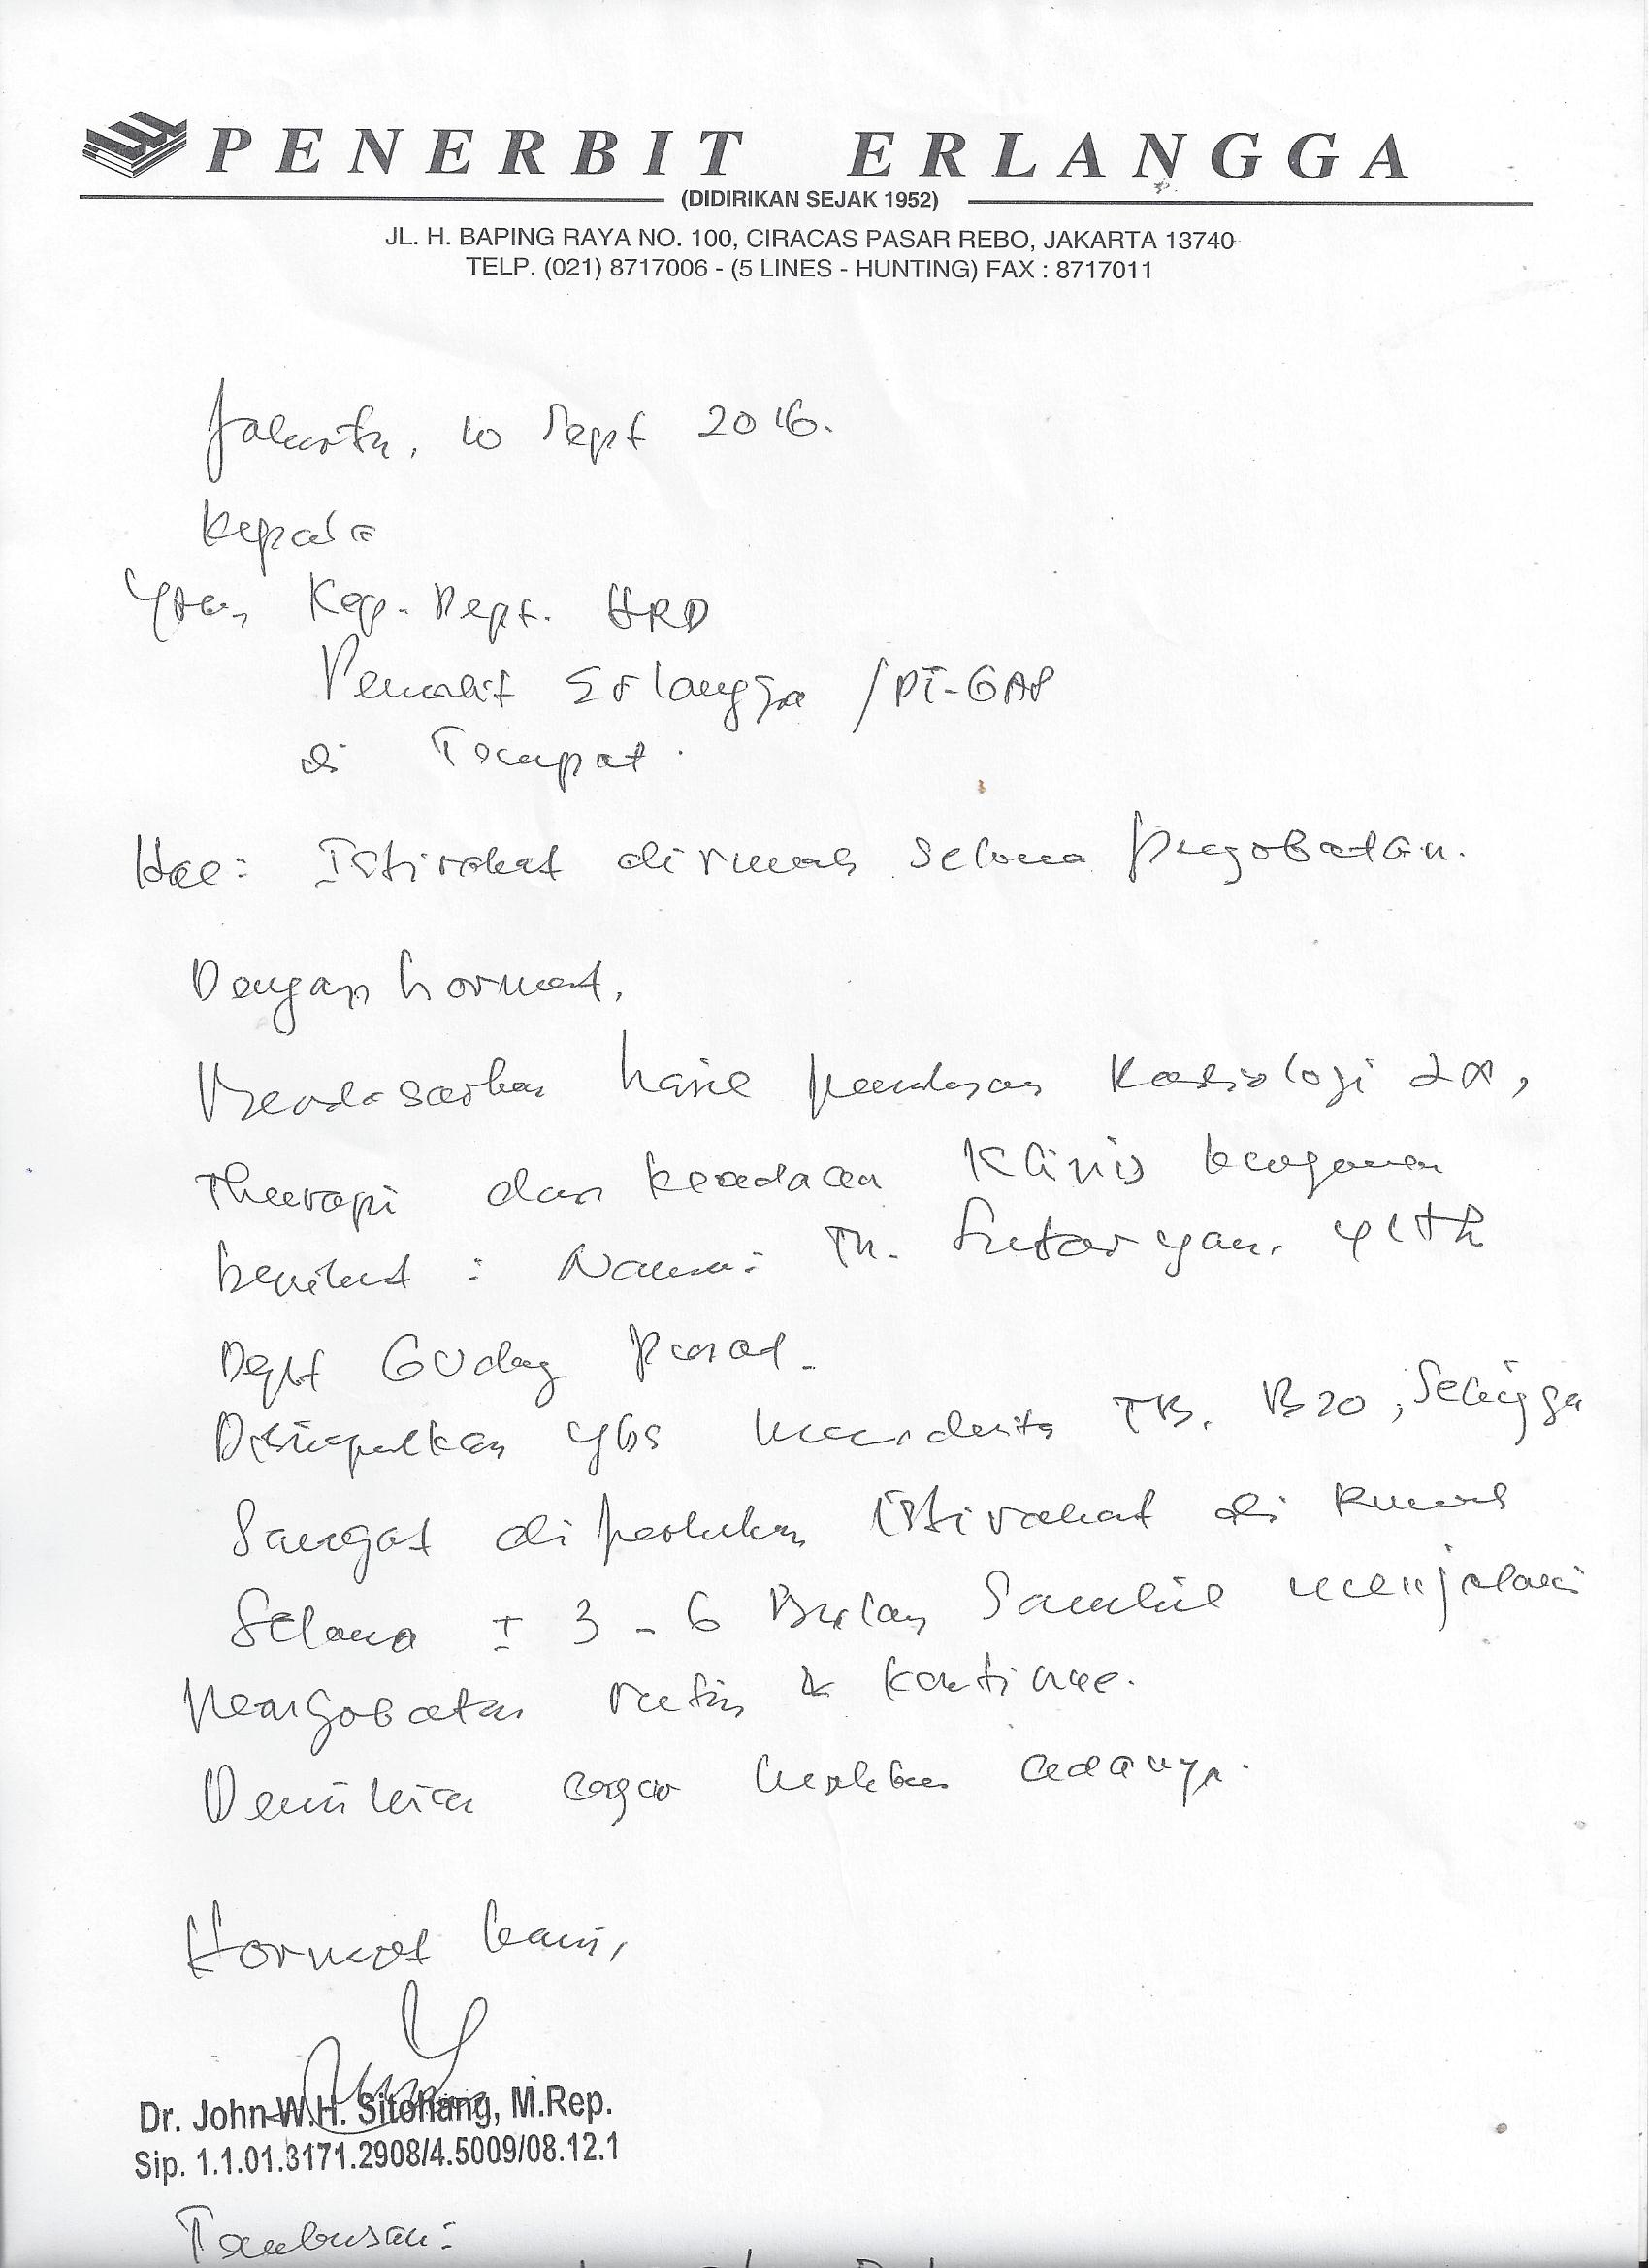 PENERBIT ERLANGGA
(DIDIRIKAN SEJAK 1952)
JL. H. BAPING RAYA NO. 100, CIRACAS PASAR REBO, JAKARTA 13740
TELP. (021) 8717006 - (5 LINES - HUNTING) FAX : 8717011
Jakarta, 10 Sept 2016.
Kepada
Yth, Kep. Dept. HRD
Penerbit Erlangga / PT-GAP
di Tempat.
Hal: Istirahat dirumah selama pengobatan.
Dengan hormat,
Berdasarkan hasil Radiologi 2x,
Therapi dan keadaan Klinis
berikut : Nama: Tn. Sutaryan.
Dept Gudang pusat.
Disimpulkan ybs menderita TB. B20, Sehingga
Sangat diperlukan istirahat di Rumah
Selama ± 3 - 6 Bulan Sambil menjalani
Pengobatan rutin & kontinue.
Demikian agar maklum adanya.
Hormat kami,
Dr. John W.H. Sitohang, M.Rep.
Sip. 1.1.01.3171.2908/4.5009/08.12.1
Tembusan: